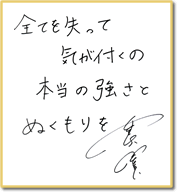 全てを失って
気が付くの
本当の強さと
ぬくもりを